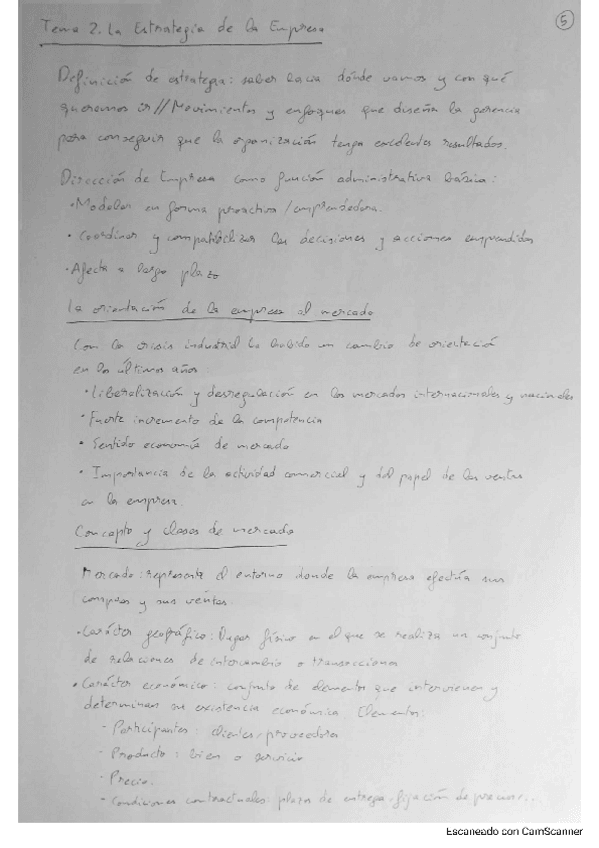 5
Tema 2. La Estrategia de la Empresa
Definición de estrategia: saber hacia dónde vamos y con qué
queremos ir // Movimientos y enfoques que diseña la gerencia
para conseguir que la organización tenga excelentes resultados.
Dirección de Empresa como función administrativa básica:
· Modelar en forma proactiva / emprendedora.
· Coordinar y compatibilizar las decisiones y acciones emprendidas
· Afecta a largo plazo
La orientación de la empresa al mercado
Con la crisis industrial ha habido un cambio de orientación
en los últimos años
· Liberalización y desregulación en los mercados internacionales y nacionales
· Fuerte incremento de la competencia
· Sentido economía de mercado
· Importancia de la actividad comercial y del papel de las ventas
en la empresa.
Concepto y clases de mercado
Mercado: representa el entorno donde la empresa efectúa sus
compras y sus ventas.
· Carácter geográfico: lugar físico en el que se realiza un conjunto
de relaciones de intercambio o transacciones
· Carácter económico: conjunto de elementos que intervienen y
determinan su existencia económica. Elementos:
- Participantes: clientes/proveedores
- Producto: bien o servicio
- Precio.
- Condiciones contractuales: plazo de entrega, fijación de precios...
Escaneado con CamScanner